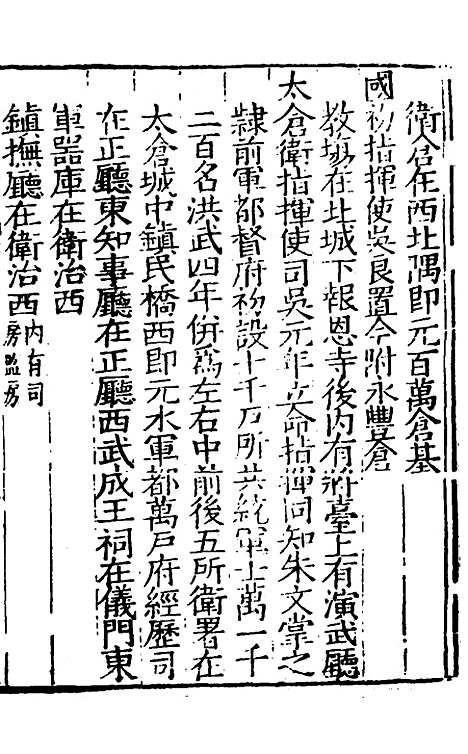 衛倉在西北隅即元百萬倉基
國初指揮使吳良置今附永豐倉
教場在北城下報恩寺後内有將臺上有演武廳
太倉衛指揮使司吳元年立命指揮同知朱文掌之
隷前軍都督府初設十千戸所共統軍士萬一千
二百名洪武四年併爲左右中前後五所衛署在
太倉城中鎮民橋西即元水軍都萬戸府經歷司
在正廳東知事廳在正廳西武成王祠在儀門東
軍器庫在衛治西
鎮撫廳在衛治西内有司房監房